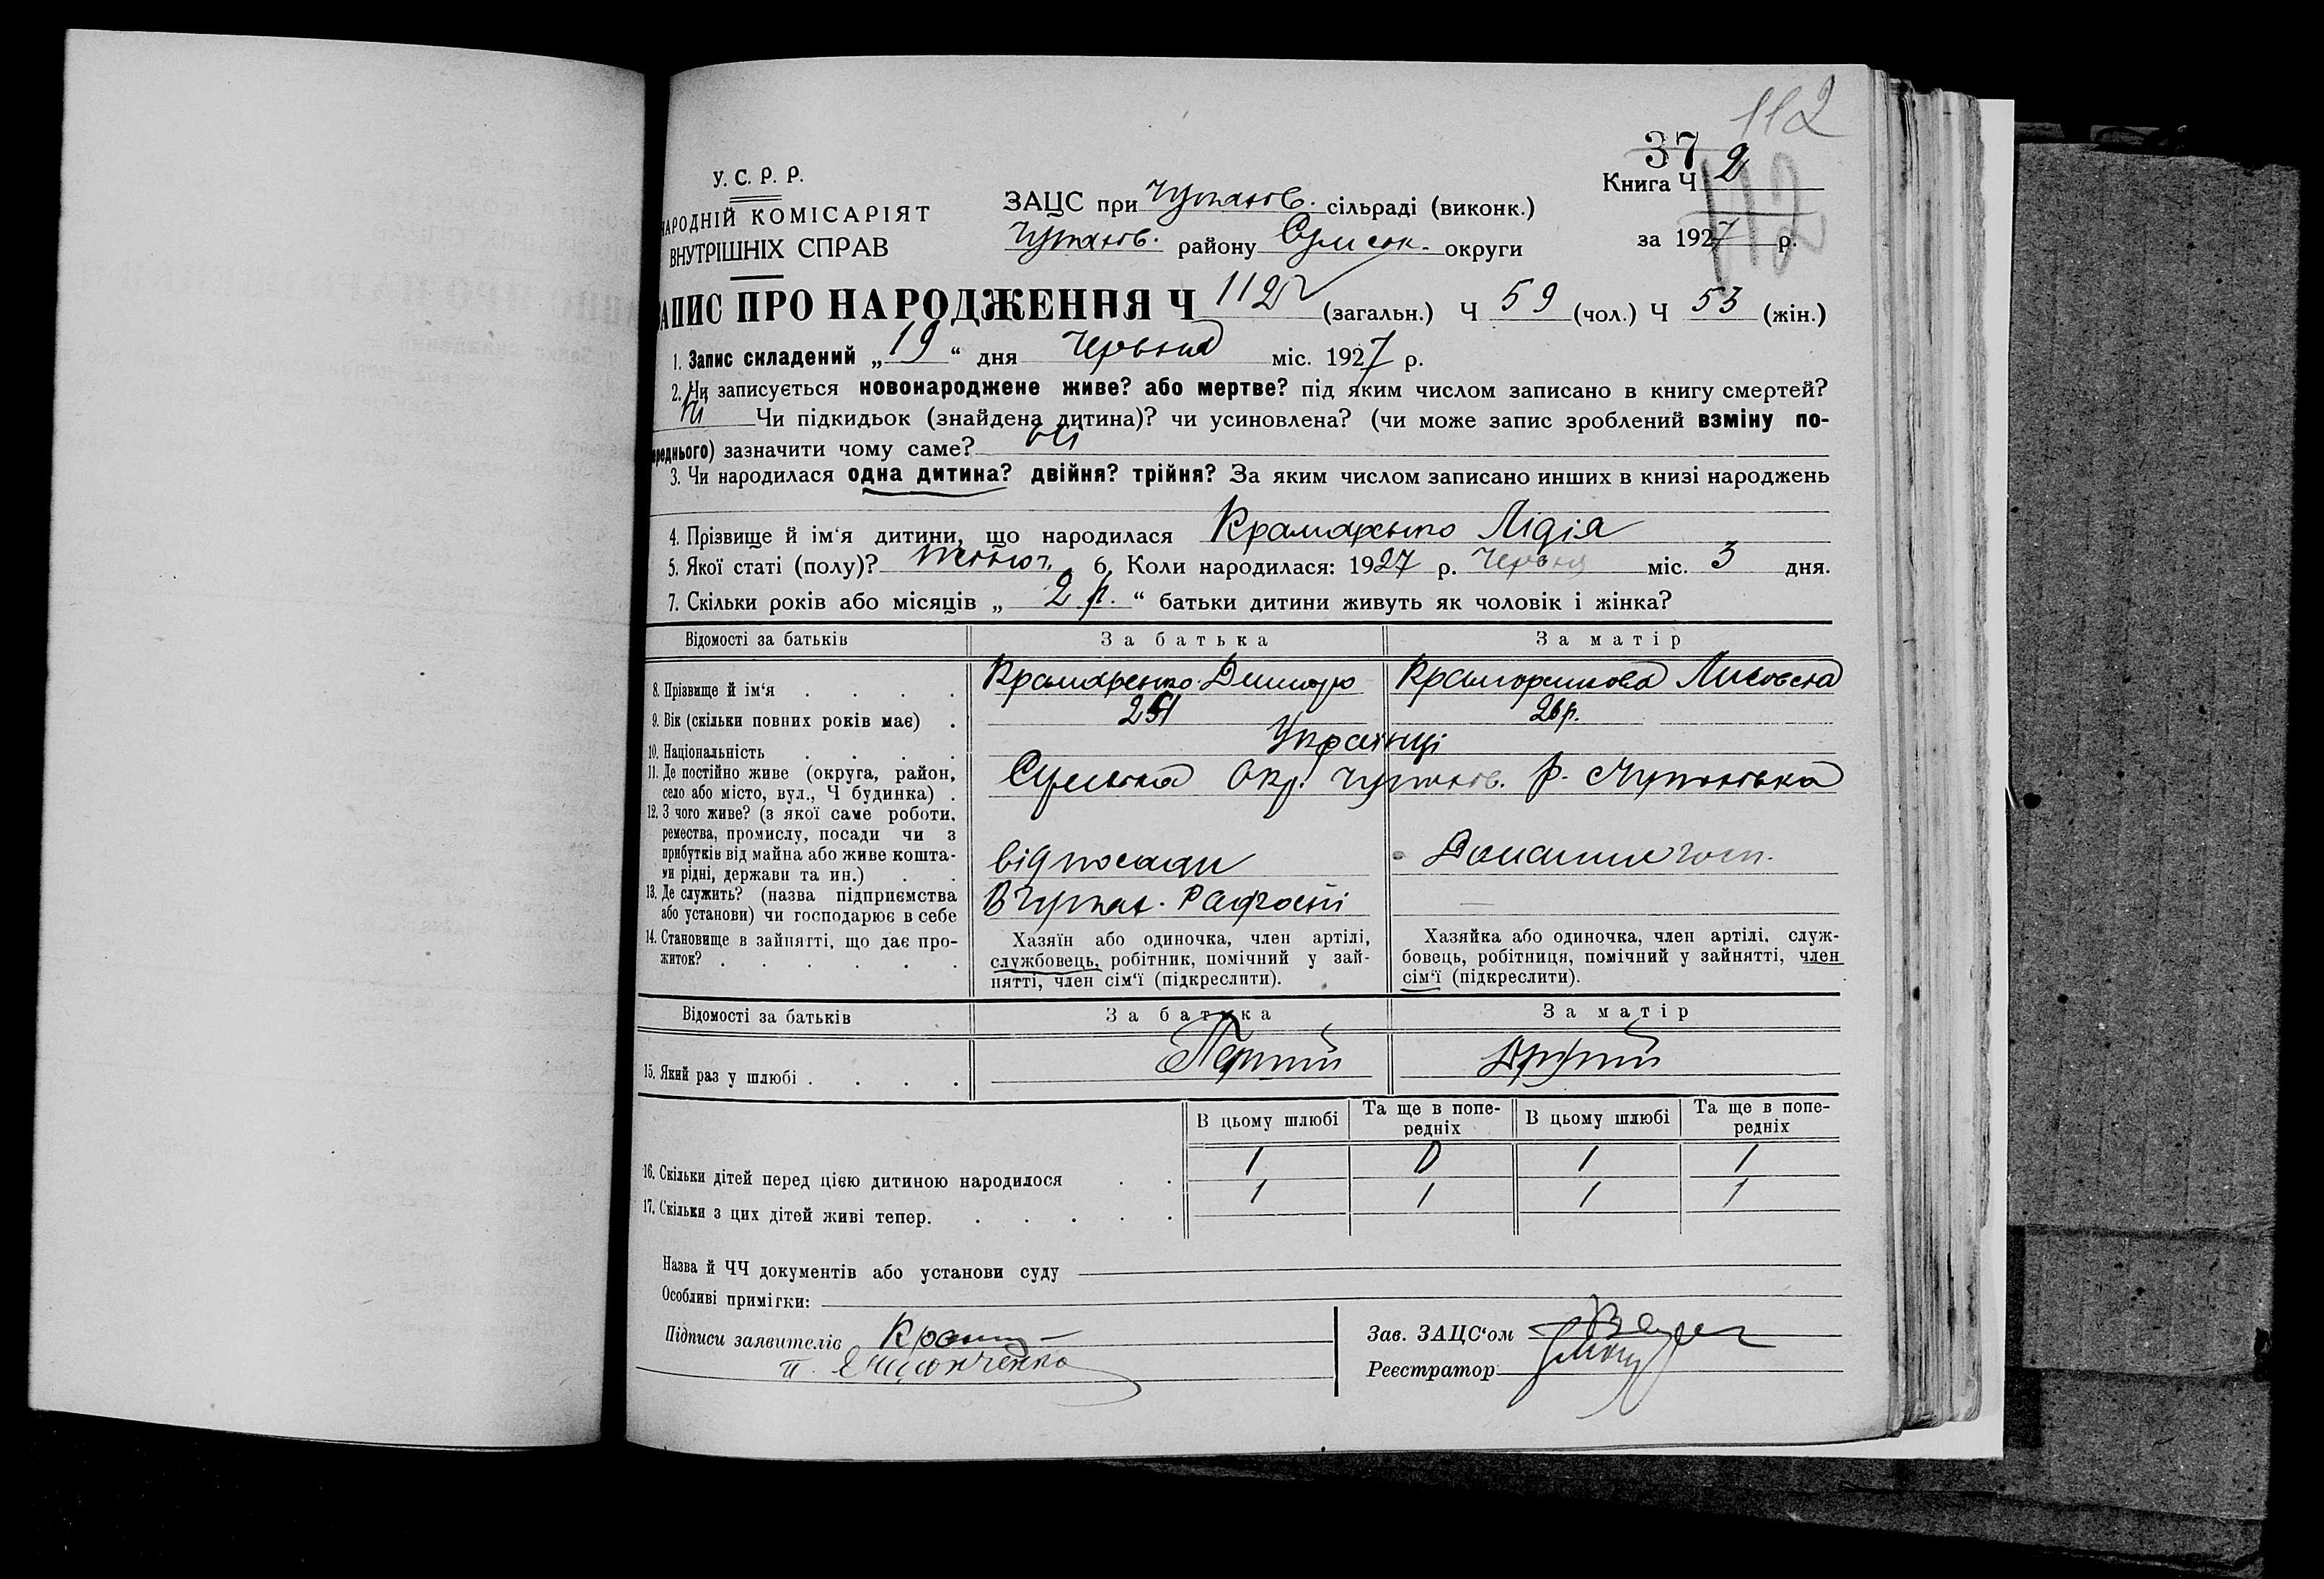 112
37
Книга Ч 2
за 1927 р.
У. С. Р. Р.
НАРОДНІЙ КОМІСАРІЯТ
ВНУТРІШНІХ СПРАВ
ЗАЦС при Чупахів. сільраді (виконк.)
Чупахів. району Сумськ. округи
ЗАПИС ПРО НАРОДЖЕННЯ Ч 112 (загальн.) Ч 59 (чол.) Ч 53 (жін.)
1. Запис складений „ 19 “ дня Червня міс. 1927 р.
2. Чи записується новонароджене живе? або мертве? під яким числом записано в книгу смертей?
ні Чи підкидьок (знайдена дитина)? чи усиновлена? (чи може запис зроблений взміну по-
реднього) зазначити чому саме? ні
3. Чи народилася одна дитина? двійня? трійня? За яким числом записано инших в книзі народжень
4. Прізвище й ім‘я дитини, що народилася Крамаренко Лідія
5. Якої статі (полу)? жіноч. 6. Коли народилася: 1927 р. Червня міс. 3 дня.
7. Скільки років або місяців „ 2 р. “ батьки дитини живуть як чоловік і жінка?
Відомості за батьків За батька За матір
8. Прізвище й ім‘я . . . . Крамаренко
9. Вік (скільки повних років має) . 26 р.
10. Національність . . . . Українці
11. Де постійно живе (округа, район,
село або місто, вул., Ч будинка) . Сумська Окр. Чупахів. р. Чупахівка
12. З чого живе? (з якої саме роботи,
ремества, промислу, посади чи з
прибутків від майна або живе кошта-
ми рідні, держави та ин.) . . від посади Домашнє госп.
13. Де служить? (назва підприємства
або установи) чи господарює в себе В Чупах. Радгоспі —
14. Становище в зайнятті, що дає про-
житок? . . . . . .
Хазяїн або одиночка, член артілі,
службовець, робітник, помічний у зай-
нятті, член сім‘ї (підкреслити).
Хазяйка або одиночка, член артілі, служ-
бовець, робітниця, помічний у зайнятті, член
сім‘ї (підкреслити).
Відомості за батьків За батька За матір
15. Який раз у шлюбі . . . . Перший Другий
В цьому шлюбі Та ще в попе-
редніх В цьому шлюбі Та ще в попе-
редніх
16. Скільки дітей перед цією дитиною народилося . . 1 0 1 1
17. Скільки з цих дітей живі тепер. . . . . . 1 1 1 1
Назва й ЧЧ документів або установи суду
Особливі примітки:
Підписи заявителів
Зав. ЗАЦС‘ом
Реєстратор